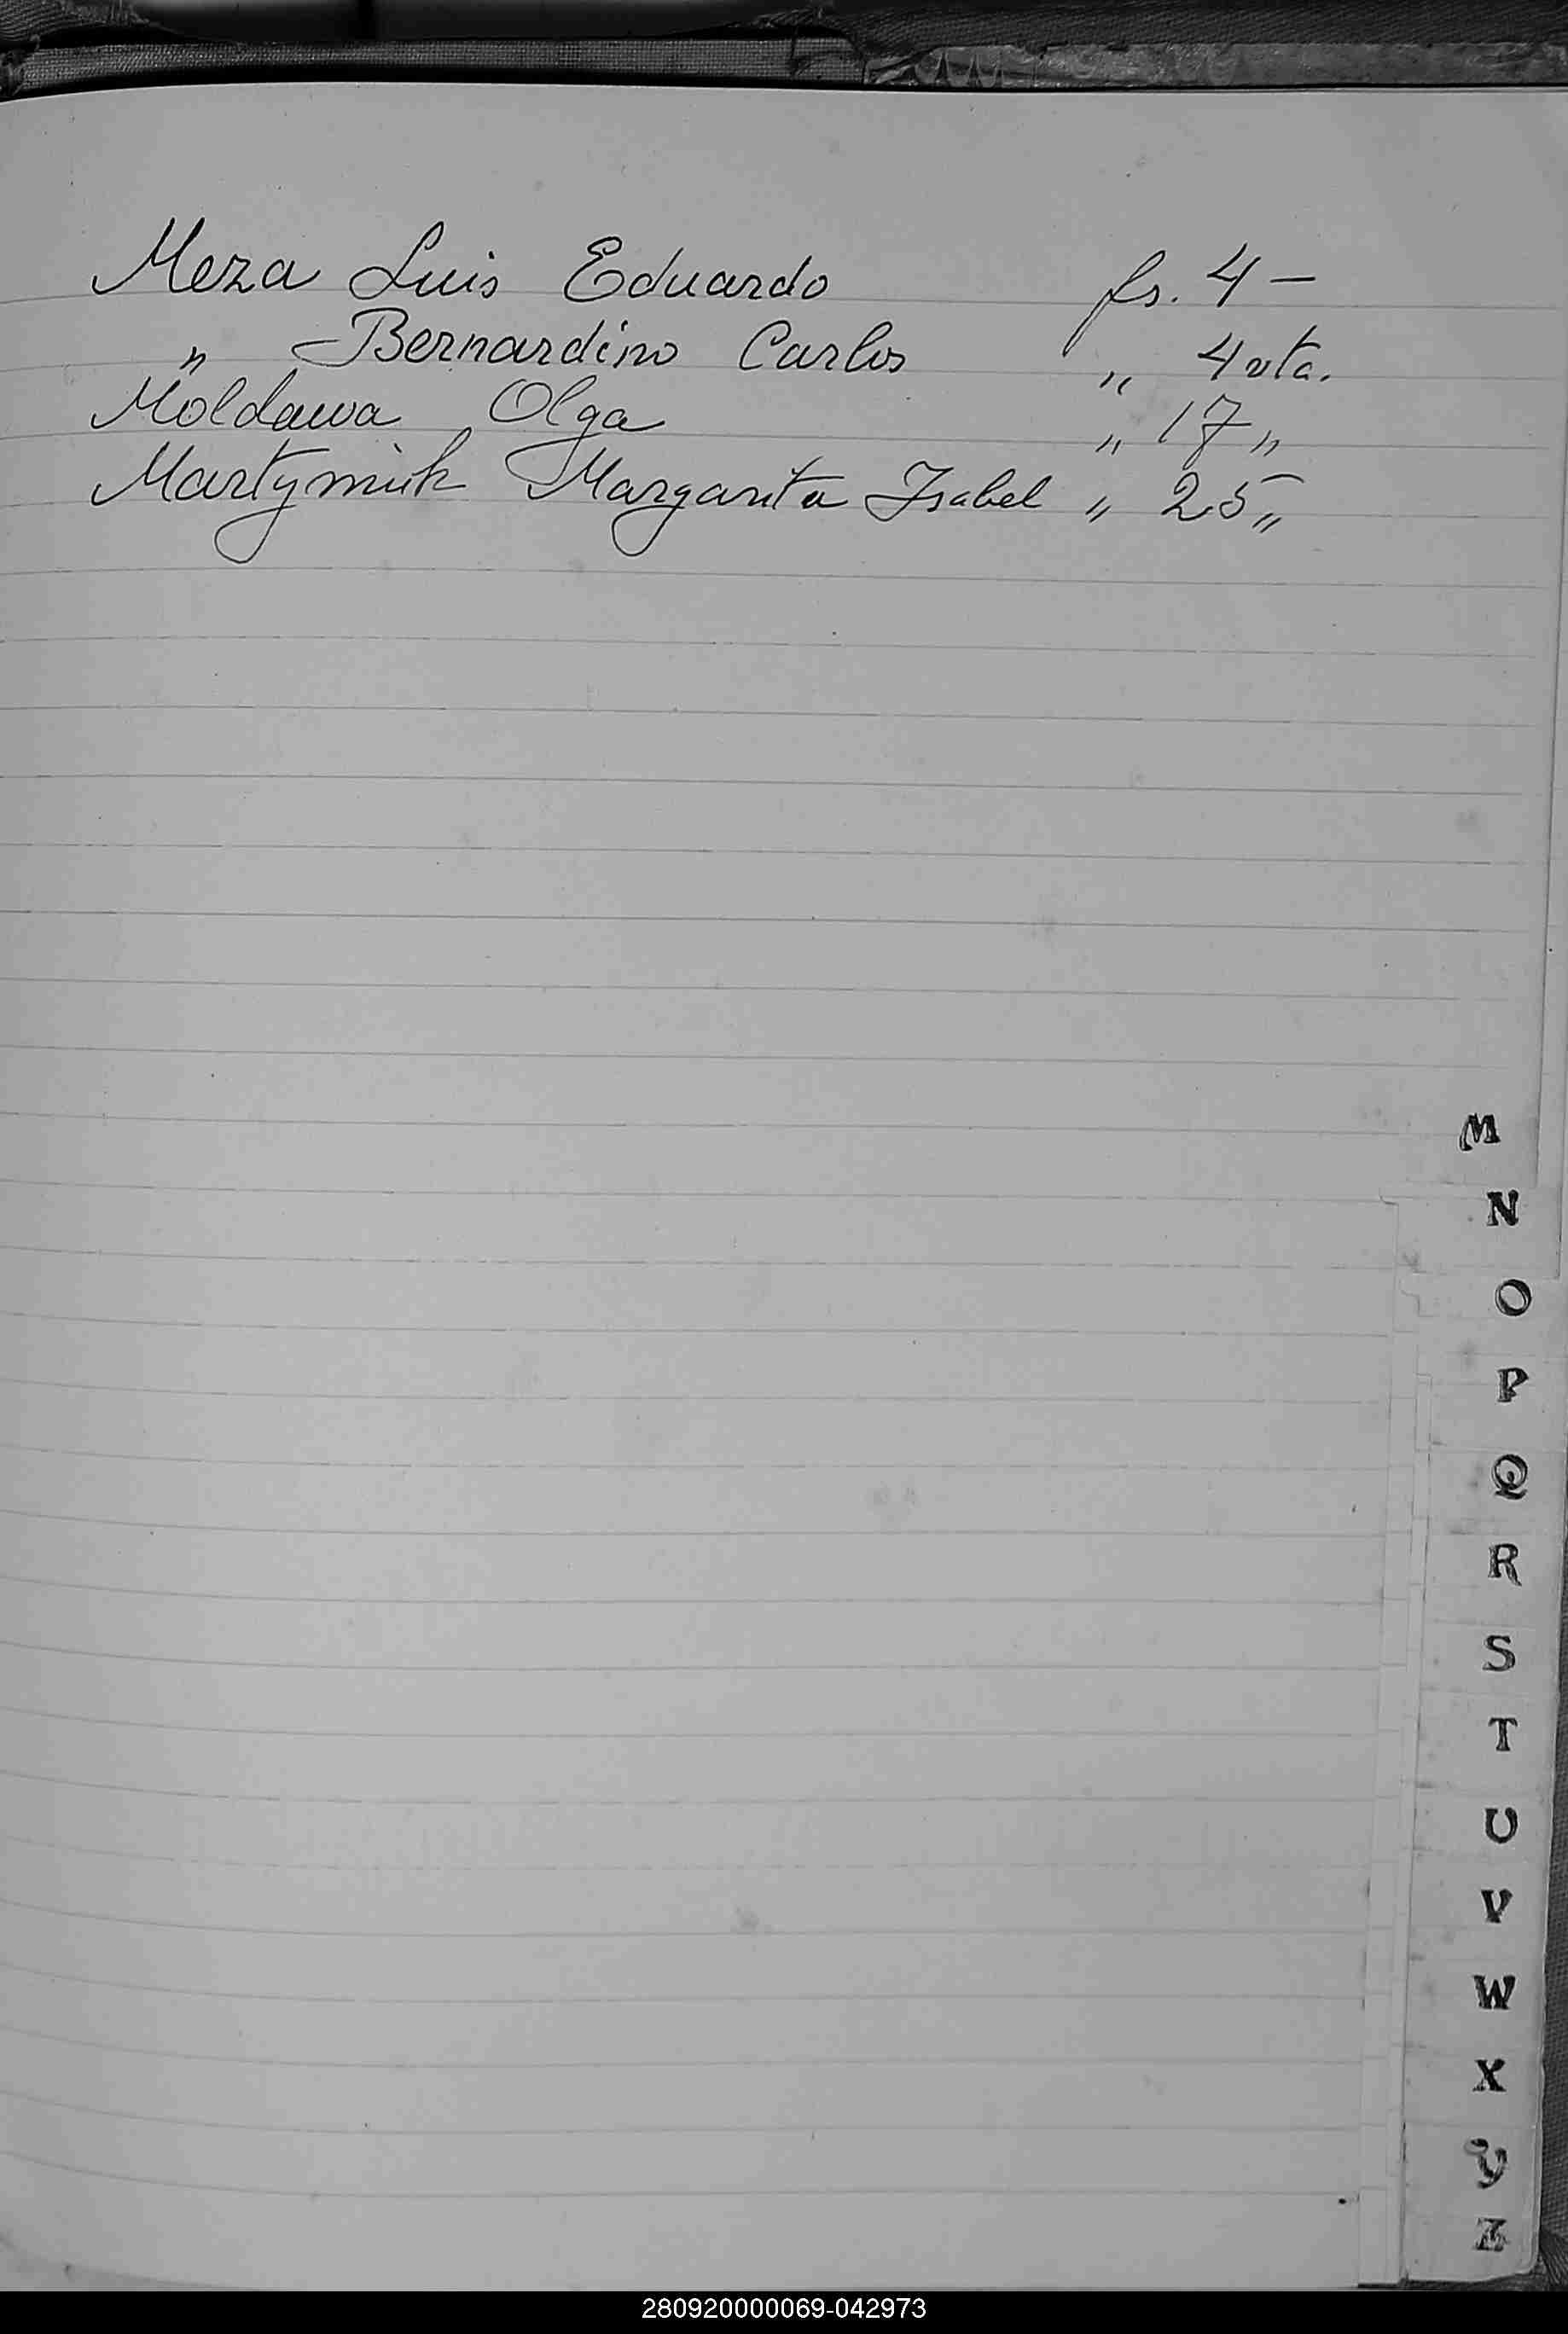 Meza Luis Eduardo fs. 4 —
" Bernardino Carlos " 4 vta.
Moldawa Olga " 17 "
Martyniuk Margarita Isabel " 25 "
M
N
O
P
Q
R
S
T
U
V
W
X
Y
Z
280920000069-042973